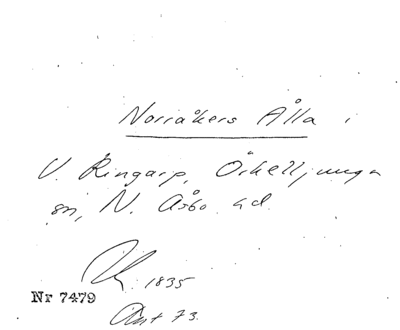 Norråkers Ålla i
V. Ringarp, Örkelljunga
sn, N. Åsbo hd.
1835
Nr 7479
73.